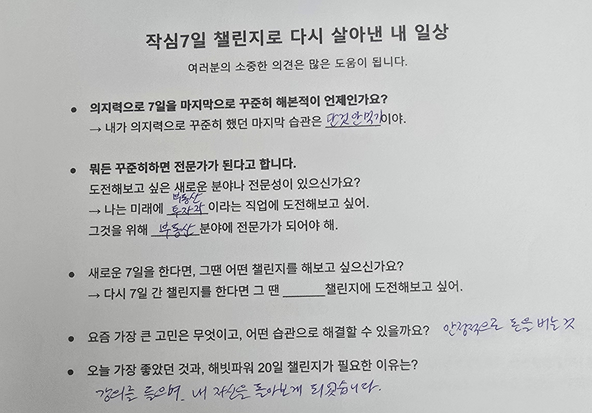 작심7일 챌린지로 다시 살아낸 내 일상
여러분의 소중한 의견은 많은 도움이 됩니다.
• 의지력으로 7일을 마지막으로 꾸준히 해본적이 언제인가요?
→ 내가 의지력으로 꾸준히 했던 마지막 습관은 단것 안먹기이야.
• 뭐든 꾸준히하면 전문가가 된다고 합니다.
도전해보고 싶은 새로운 분야나 전문성이 있으신가요?
부동산
→ 나는 미래에 투자자 이라는 직업에 도전해보고 싶어.
그것을 위해 부동산 분야에 전문가가 되어야 해.
• 새로운 7일을 한다면, 그땐 어떤 챌린지를 해보고 싶으신가요?
→ 다시 7일 간 챌린지를 한다면 그 땐 ______챌린지에 도전해보고 싶어.
• 요즘 가장 큰 고민은 무엇이고, 어떤 습관으로 해결할 수 있을까요? 안정적으로 돈을 버는 것
• 오늘 가장 좋았던 것과, 해빗파워 20일 챌린지가 필요한 이유는?
강의를 들으며, 내 자신을 돌아보게 되었습니다.